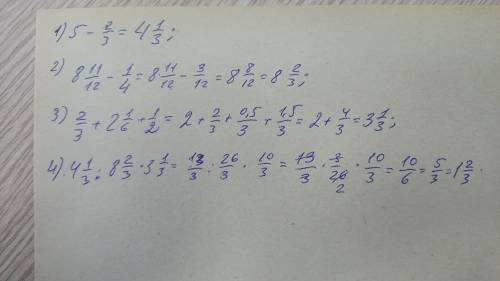 1) 5 - 2/3 = 4 1/3;
2) 8 11/12 - 1/4 = 8 11/12 - 3/12 = 8 8/12 = 8 2/3;
3) 2/3 + 2 1/6 + 1/2 = 2 + 2/3 + 0,5/3 + 1,5/3 = 2 + 4/3 = 3 1/3;
4) 4 1/3 : 8 2/3 · 3 1/3 = 13/3 : 26/3 · 10/3 = 13/3 · 3/26 2 · 10/3 = 10/6 = 5/3 = 1 2/3.